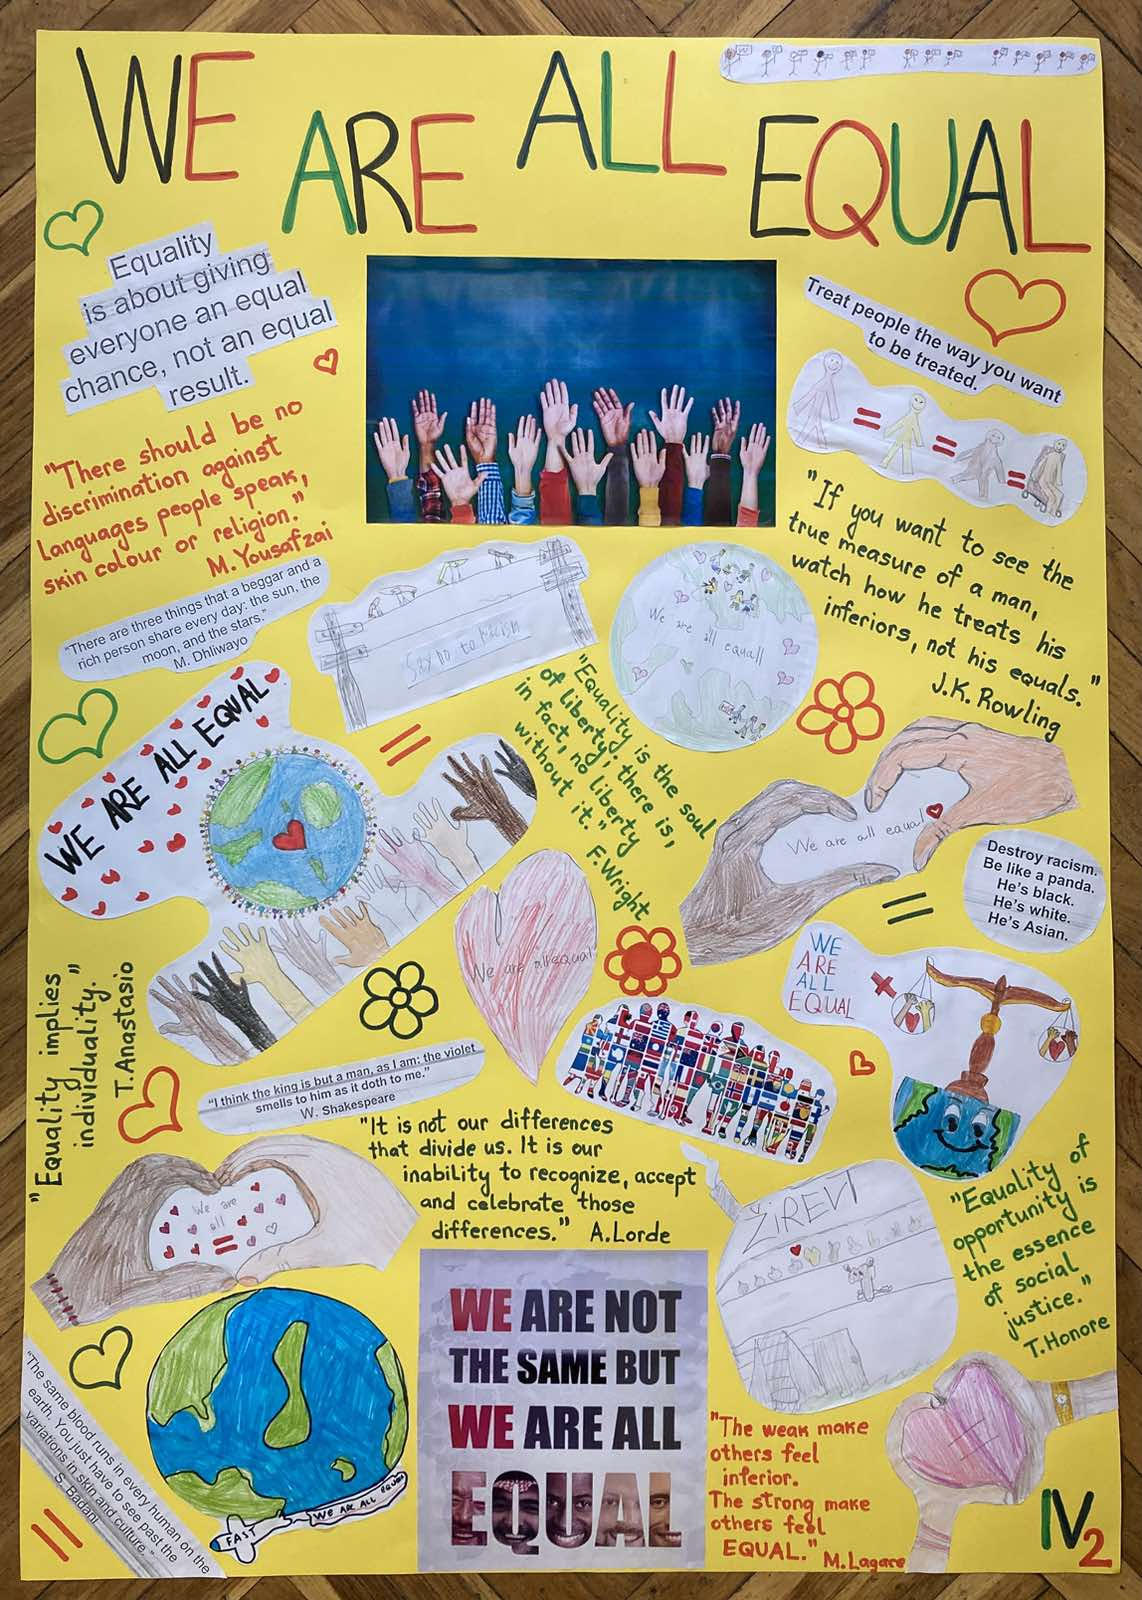 WE ARE ALL EQUAL
Equality
is about giving
everyone an equal
chance, not an equal
result.
Treat people the way you want
to be treated.
=
=
=
"There should be no
discrimination against
languages people speak,
skin colour or religion."
M. Yousafzai
"If you want to see the
true measure of a man,
watch how he treats his
inferiors, not his equals."
J.K. Rowling
"There are three things that a beggar and a
rich person share every day: the sun, the
moon, and the stars."
M. Dhliwayo
Say no to racism
We are all equal!
WE ARE ALL EQUAL
=
"Equality is the soul
of liberty; there is,
in fact, no liberty
without it."
F. Wright
We are all equal
Destroy racism.
Be like a panda.
He's black.
He's white.
He's Asian.
=
We are all equal
WE
ARE
ALL
EQUAL
"Equality implies
individuality."
T. Anastasio
"I think the king is but a man, as I am: the violet
smells to him as it doth to me."
W. Shakespeare
"It is not our differences
that divide us. It is our
inability to recognize, accept
and celebrate those
differences." A. Lorde
We are
all
=
ŽIREVI
"Equality of
opportunity is
the essence
of social
justice."
T. Honore
WE ARE NOT
THE SAME BUT
WE ARE ALL
EQUAL
"The same blood runs in every human on the
earth. You just have to see past the
variations in skin and culture."
S. Badani
=
FAST
WE ARE ALL EQUAL
"The weak make
others feel
inferior.
The strong make
others feel
EQUAL." M. Lagace
=
IV2